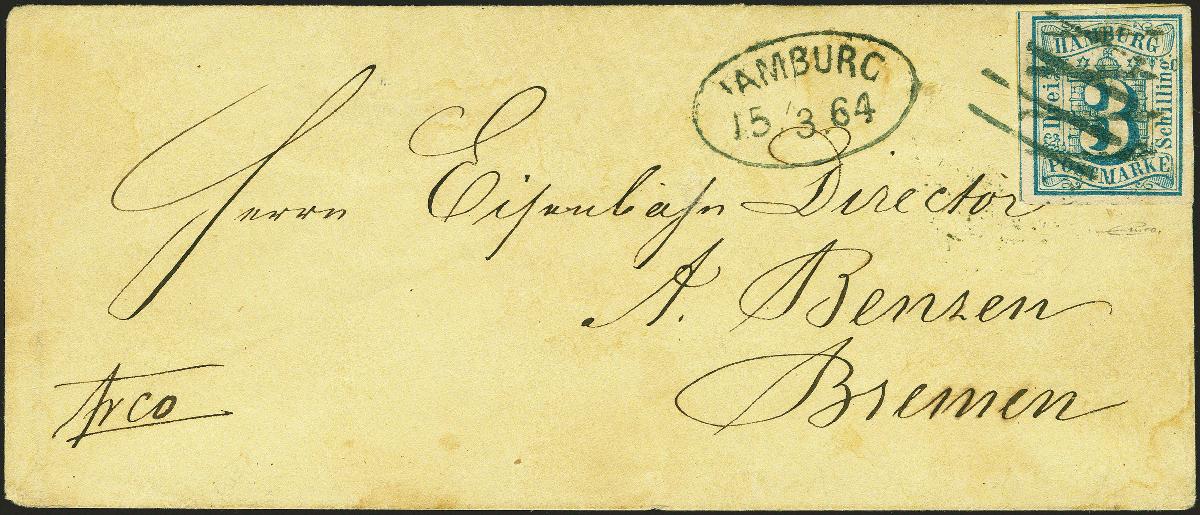 HAMBURG
15/3 64
HAMBURG
Drei
3
Schilling
POSTMARKE
Herrn Eisenbahn Director
A. Benzen
Bremen
frco